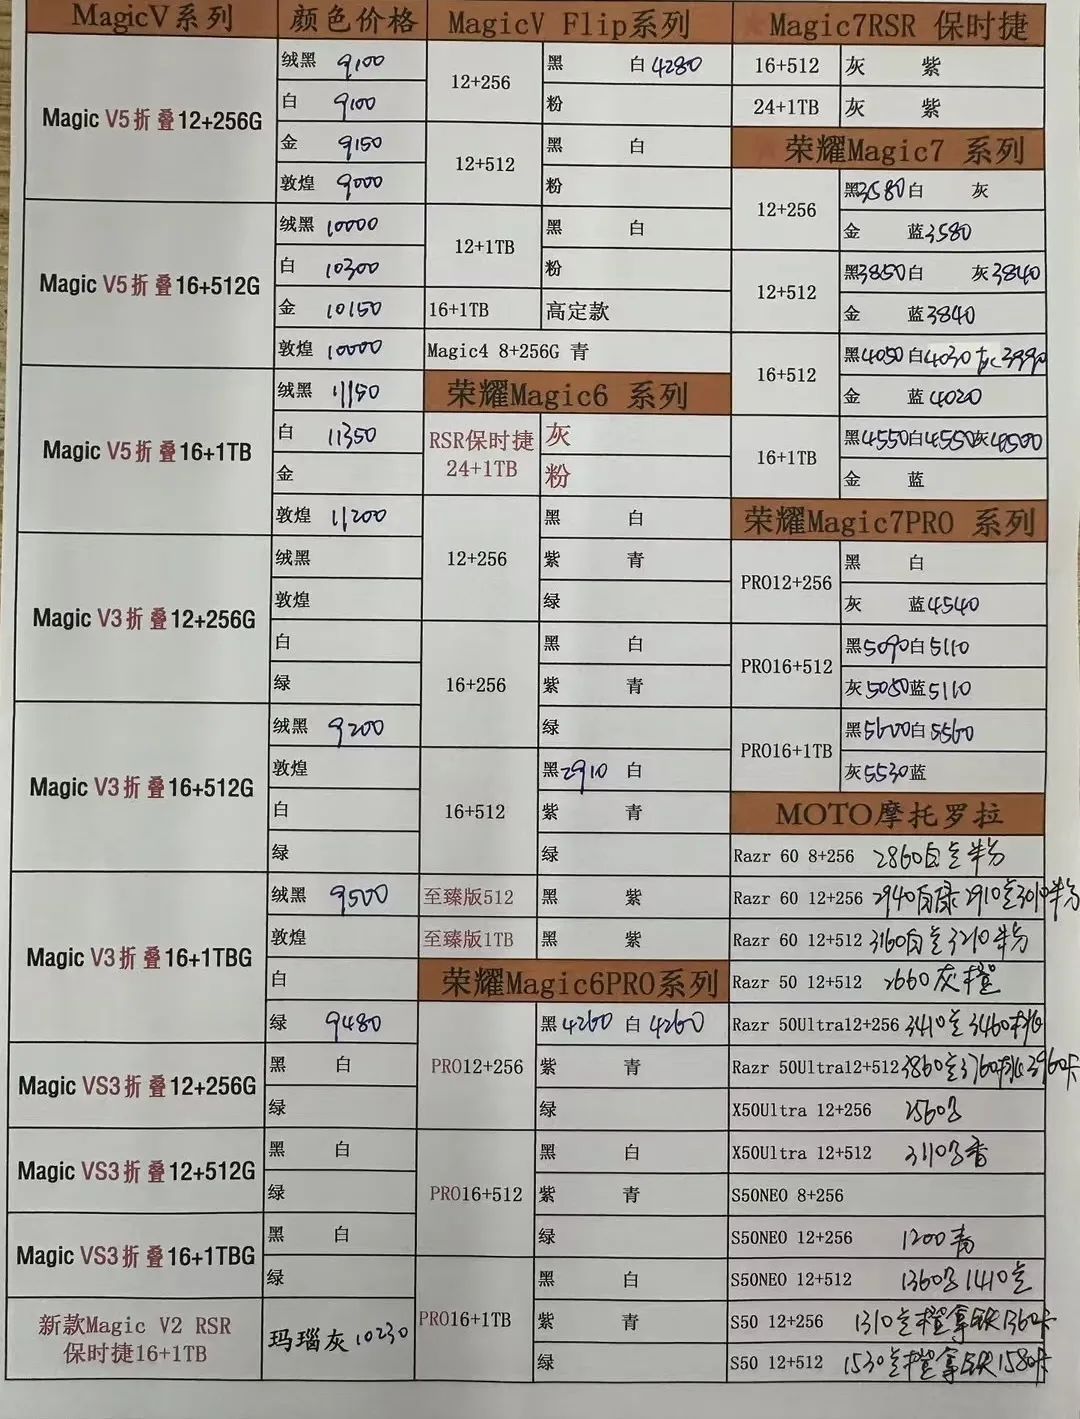 MagicV系列 颜色价格
Magic V5折叠12+256G
绒黑 9100
白 9100
金 9150
敦煌 9000
Magic V5折叠16+512G
绒黑 10000
白 10300
金 10150
敦煌 10000
Magic V5折叠16+1TB
绒黑 11150
白 11350
金
敦煌 11200
Magic V3折叠12+256G
绒黑
敦煌
白
绿
Magic V3折叠16+512G
绒黑 9200
敦煌
白
绿
Magic V3折叠16+1TBG
绒黑 9500
敦煌
白
绿 9480
Magic VS3折叠12+256G
黑 白
绿
Magic VS3折叠12+512G
黑 白
绿
Magic VS3折叠16+1TBG
黑 白
绿
新款Magic V2 RSR
保时捷16+1TB
玛瑙灰 10230
MagicV Flip系列
12+256
黑 白 4280
粉
12+512
黑 白
粉
12+1TB
黑 白
粉
16+1TB 高定款
Magic4 8+256G 青
荣耀Magic6 系列
RSR保时捷
24+1TB
灰
粉
12+256
黑 白
紫 青
绿
16+256
黑 白
紫 青
绿
16+512
黑2910 白
紫 青
绿
至臻版512 黑 紫
至臻版1TB 黑 紫
荣耀Magic6PRO系列
PRO12+256
黑4260 白4260
紫 青
绿
PRO16+512
黑 白
紫 青
绿
PRO16+1TB
黑 白
紫 青
绿
Magic7RSR 保时捷
16+512 灰 紫
24+1TB 灰 紫
荣耀Magic7 系列
12+256
黑3580白 灰
金 蓝3580
12+512
黑3850白 灰3840
金 蓝3840
16+512
黑4050白4030灰3990
金 蓝4020
16+1TB
黑4550白4550灰4500
金 蓝
荣耀Magic7PRO 系列
PRO12+256
黑 白
灰 蓝4540
PRO16+512
黑5090白5110
灰5080蓝5110
PRO16+1TB
黑5600白5560
灰5530蓝
MOTO摩托罗拉
Razr 60 8+256 2860白 粉
Razr 60 12+256 2940白绿 2910 3010粉
Razr 60 12+512 3160白 3210粉
Razr 50 12+512 2660灰橙
Razr 50Ultra12+256 3410 3460桃
Razr 50Ultra12+512 3860 3760桃 3960卡
X50Ultra 12+256 2560
X50Ultra 12+512 3110 香
S50NEO 8+256
S50NEO 12+256 1200青
S50NEO 12+512 1360 1410
S50 12+256 1310 橙拿铁1360卡
S50 12+512 1530 橙拿铁1580卡